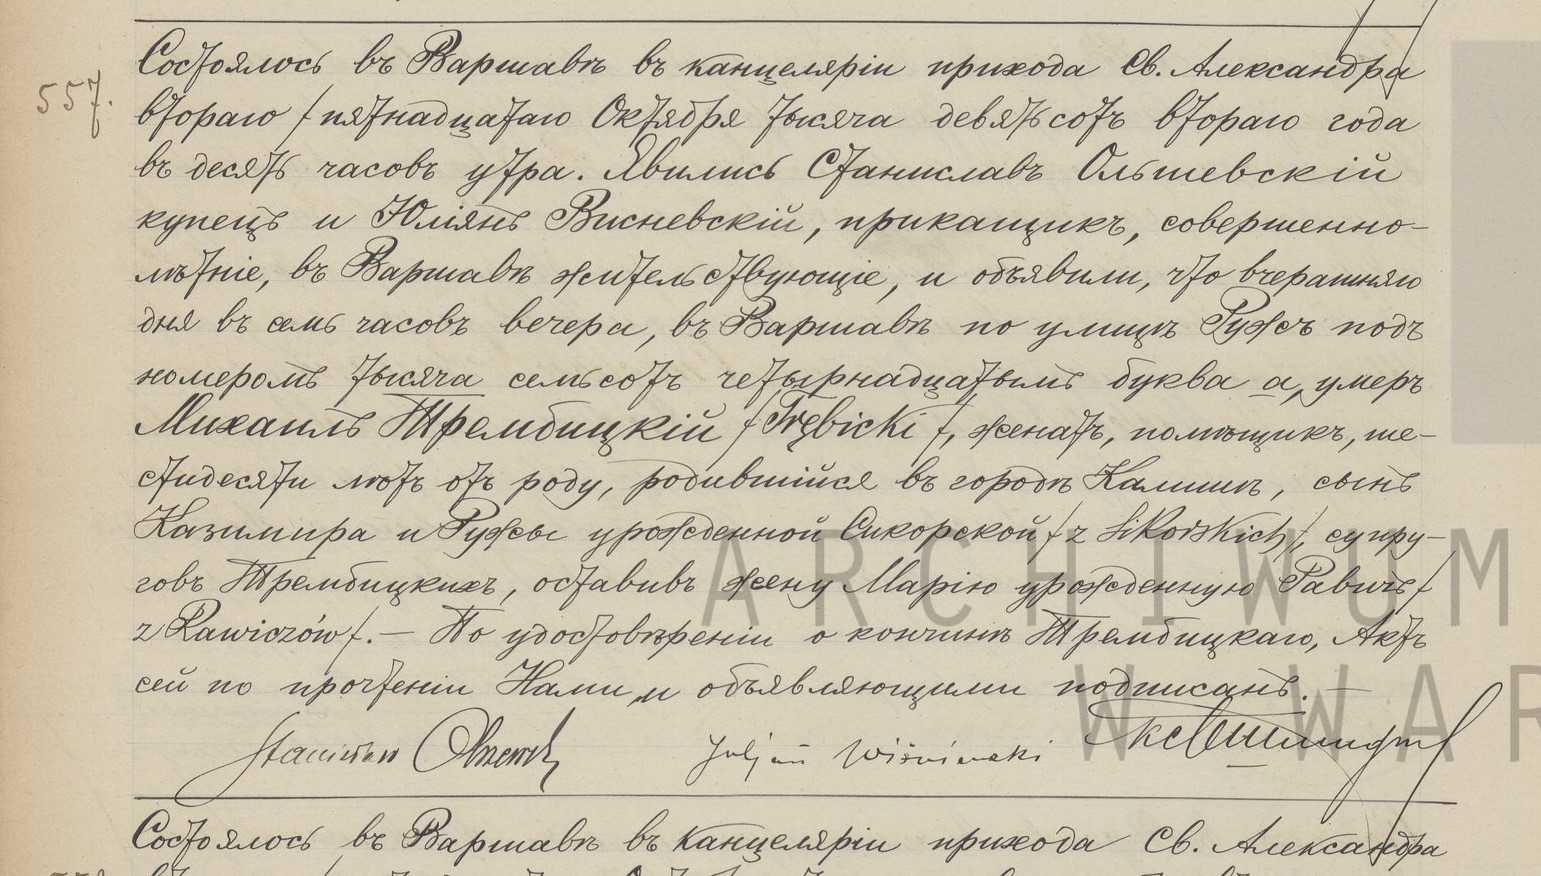 557.
Состоялось въ Варшавѣ въ канцеляріи прихода Св. Александра
втораго /пятнадцатаго Октября тысяча девятьсотъ втораго года
въ десять часовъ утра. Явились Станиславъ Ольшевскій
купецъ и Юліянъ Висневскій, прикащикъ, совершенно-
лѣтніе, въ Варшавѣ жительствующіе, и объявили, что вчерашняго
дня въ семь часовъ вечера, въ Варшавѣ по улицѣ Ружъ подъ
номеромъ тысяча семьсотъ четырнадцатымъ буква а, умеръ
Михаилъ Трембицкій /Trębicki/, женатъ, помѣщикъ, ше-
стидесяти лѣтъ отъ роду, родившійся въ городѣ Калишѣ, сынъ
Казимира и Ружы урожденной Сикорской /z Sikorskich/, супру-
говъ Трембицкихъ, оставивъ жену Марію урожденную Равичъ /
z Rawiczów/. — По удостовѣреніи о кончинѣ Трембицкаго, Актъ
сей по прочтеніи Нами и объявляющими подписанъ. —
Stanisław Julian Wiśniewski
Состоялось въ Варшавѣ въ канцеляріи прихода Св. Александра
ARCHIWUM
W WAR